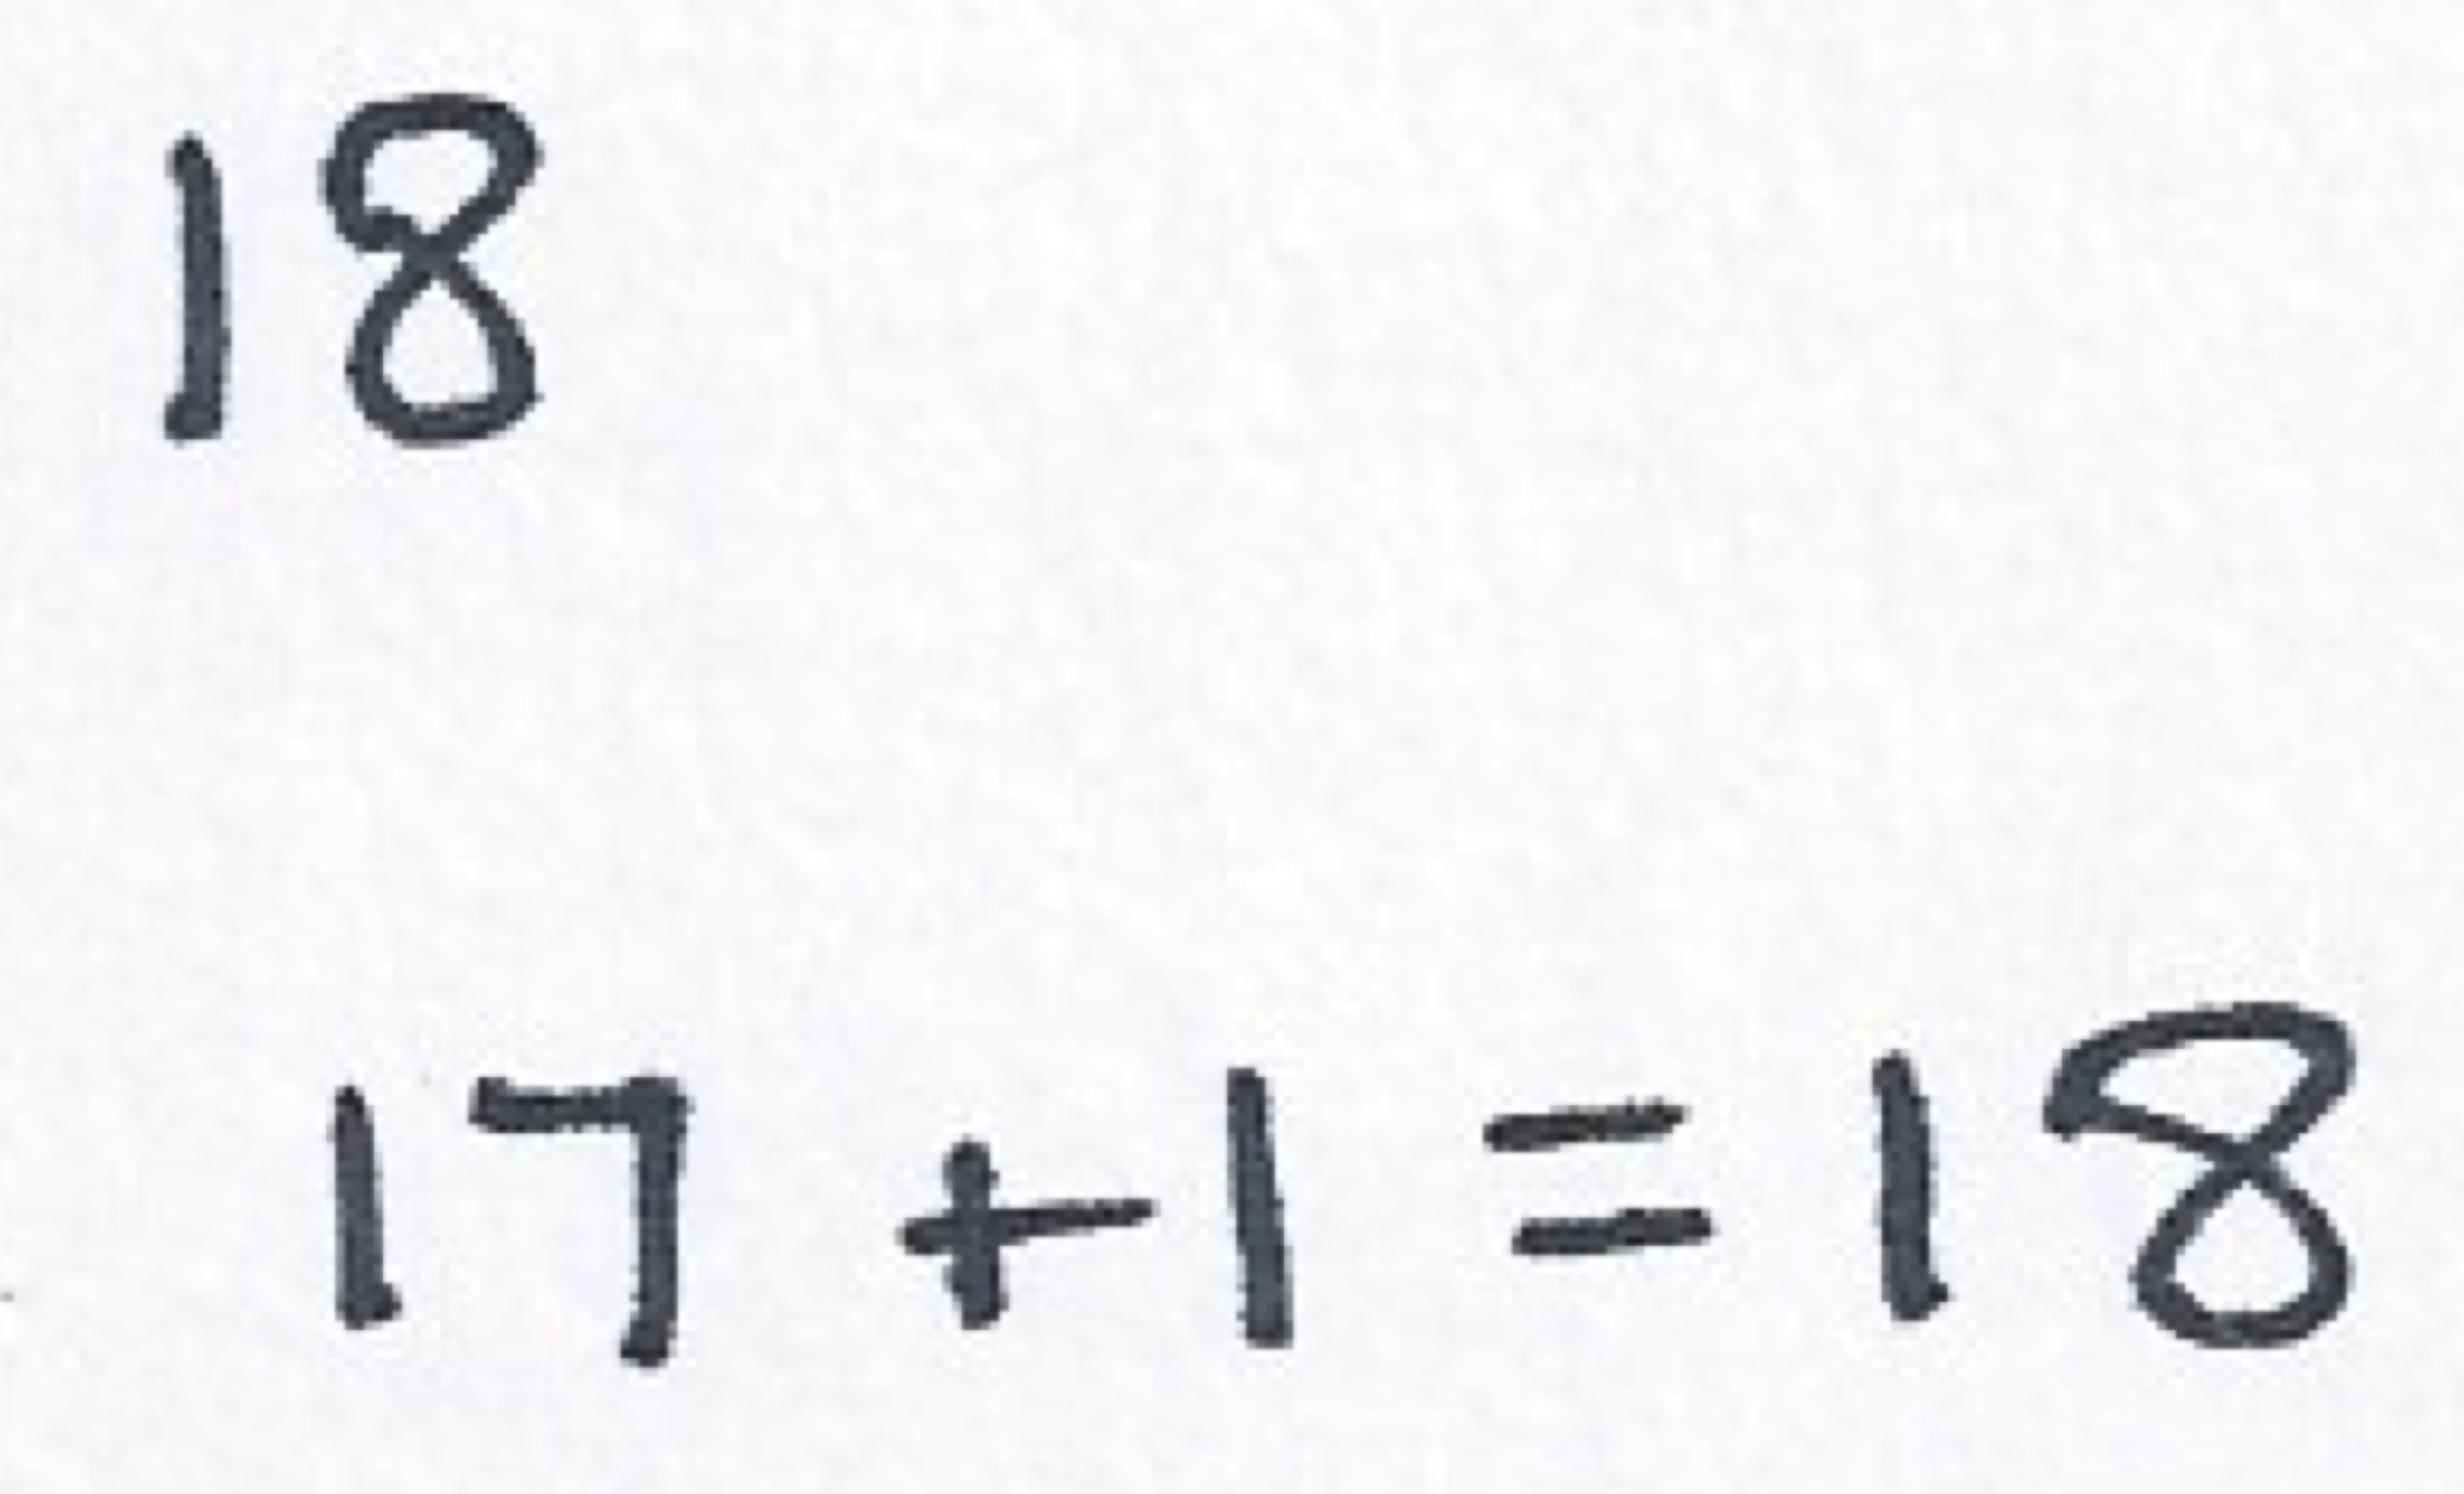 18
17 + 1 = 18